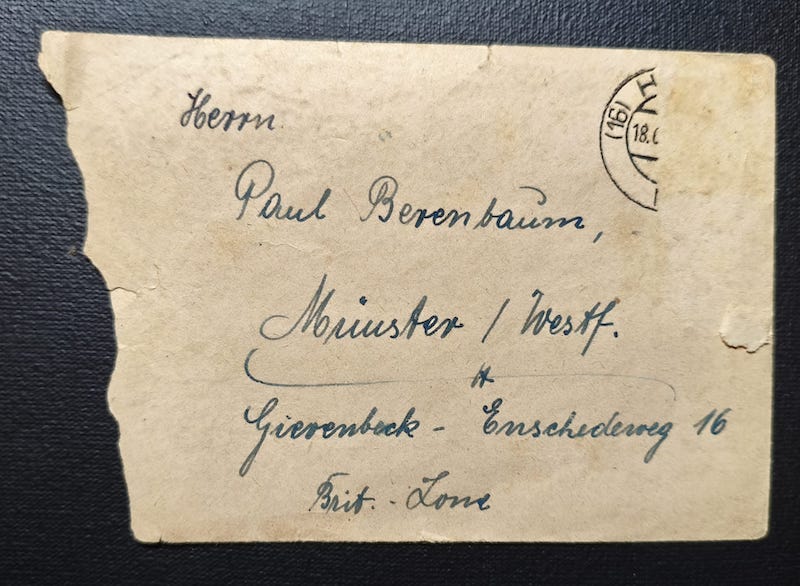 Herrn
Paul Berenbaum,
Münster / Westf.
Gievenbeck - Enschedeweg 16
Brit. - Zone
(16)
18.